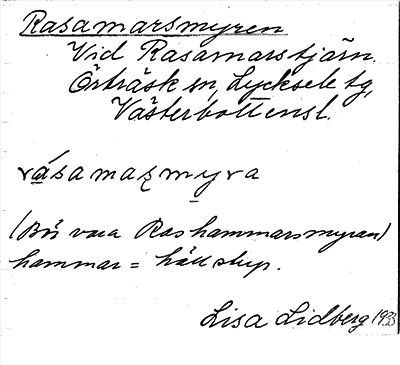 Rasamarsmyren
Vid Rasamarstjärn.
Örträsk sn, Lycksele tg,
Västerbottensl.
rásamaʂmyra
(Bör vara Rashammarsmyran)
hammar = häll stup.
Lisa Lidberg 1933